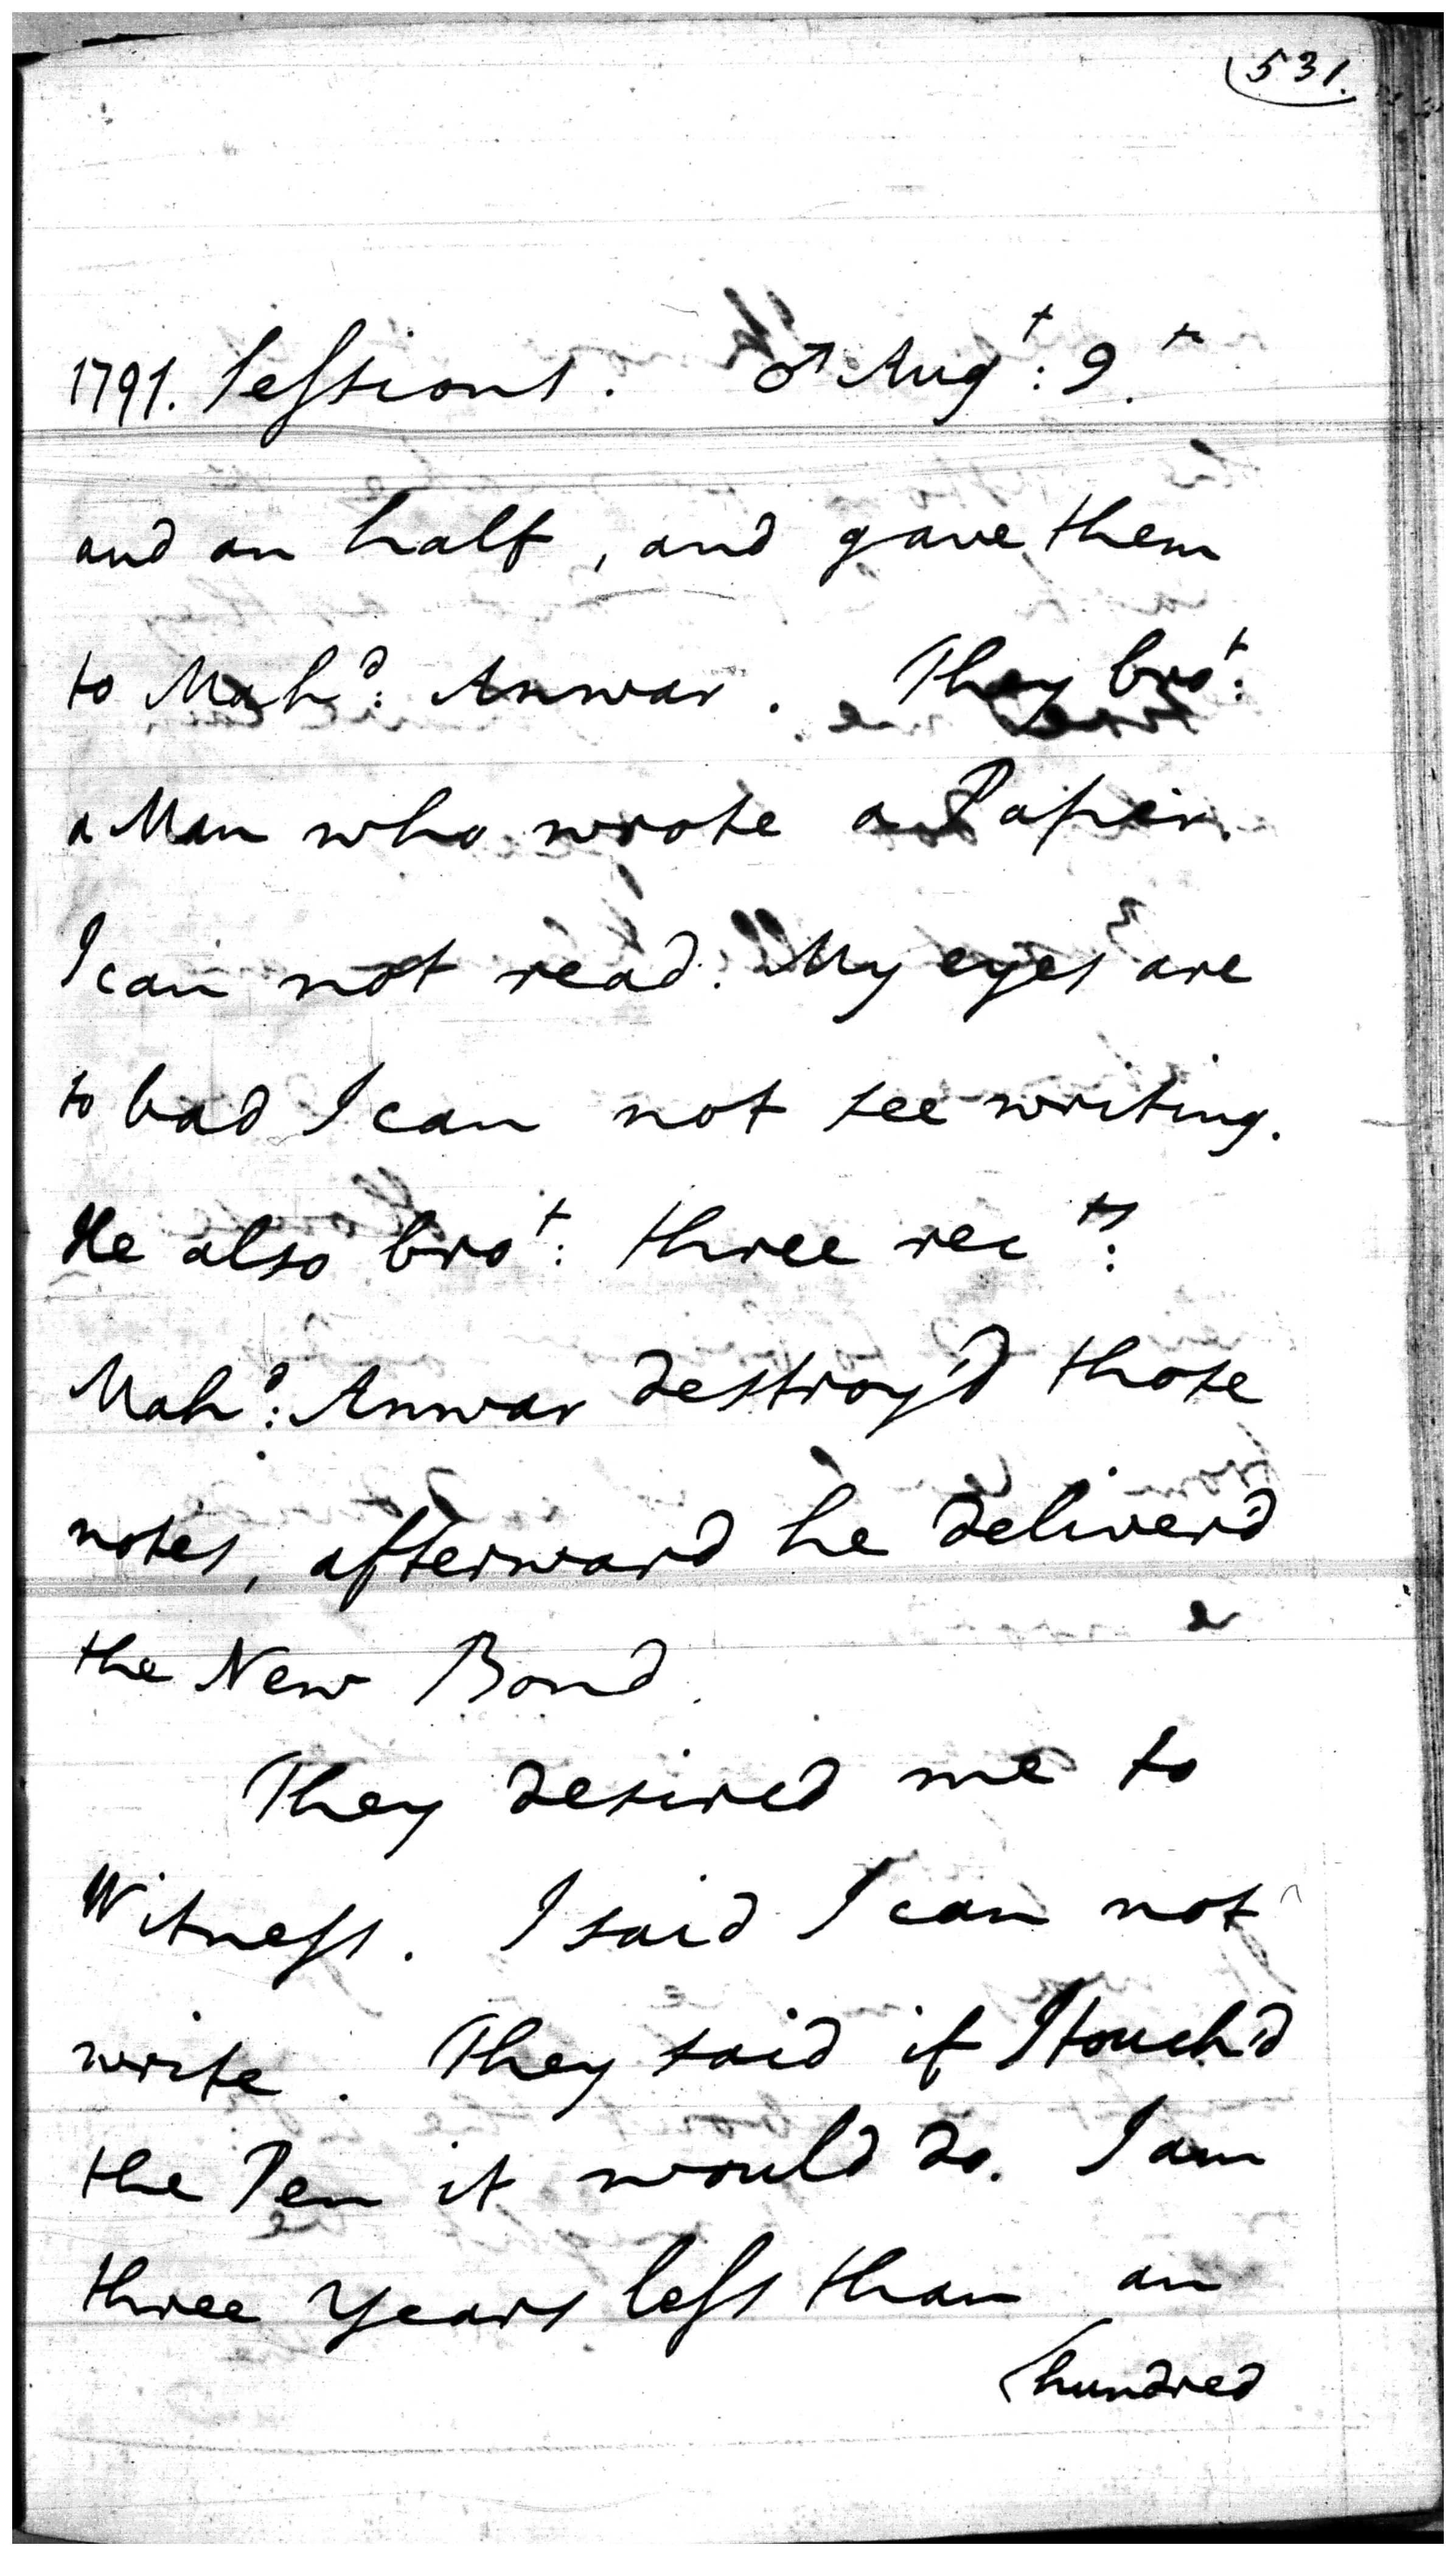 531.
1791. Sessions. ♂ Augt: 9.th
and an half, and gave them
to Mahd: Anwar. They brot:
a Man who wrote a Paper.
I can not read. My eyes are
so bad I can not see writing.
He also brot: three rects:
Mahd: Anwar destroy'd those
notes, afterward he deliver'd
the New Bond.
They desired me to
Witness. I said I can not
write. They said if I touch'd
the Pen it would do. I am
three Years less than an
hundred